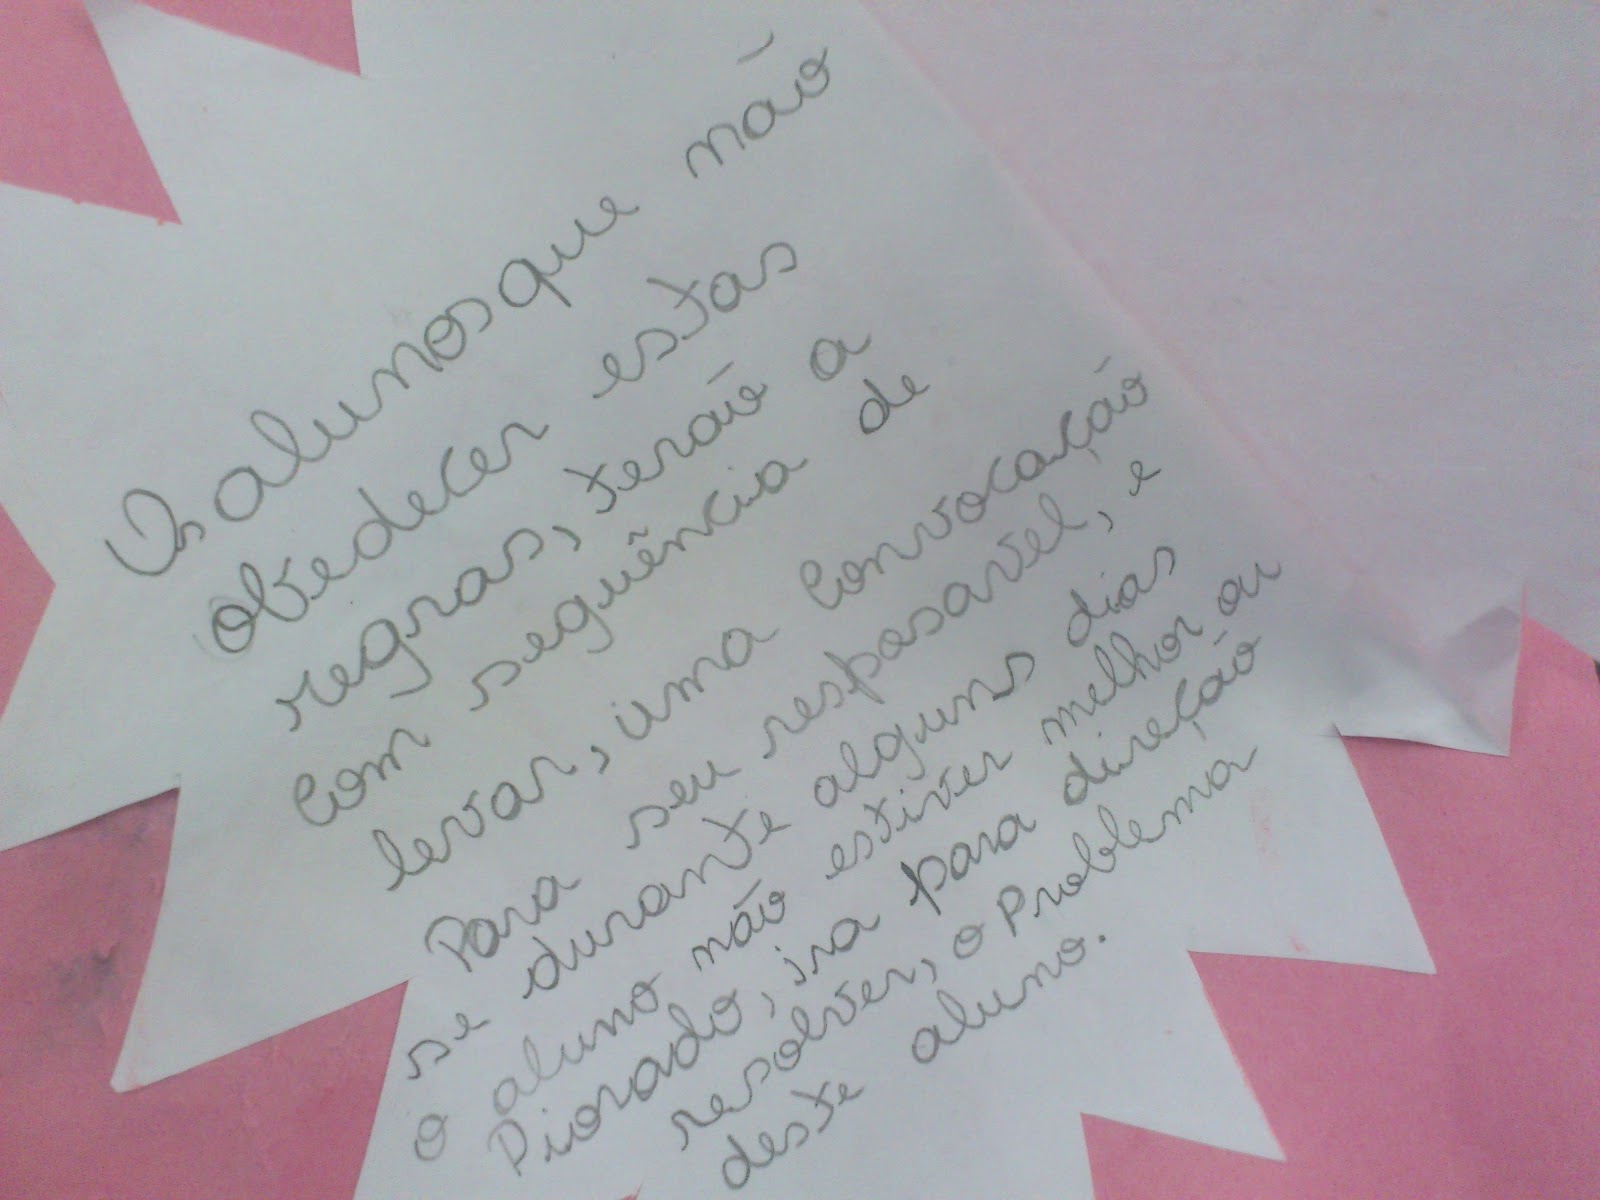 Os alunos que não
obedecer estas
regras, terão a
com seguência de
levar, uma convocação
Para seu resposavel, e
se durante alguns dias
o aluno não estiver melhor ou
Piorado, ira para direção
resolver, o Problema
deste aluno.